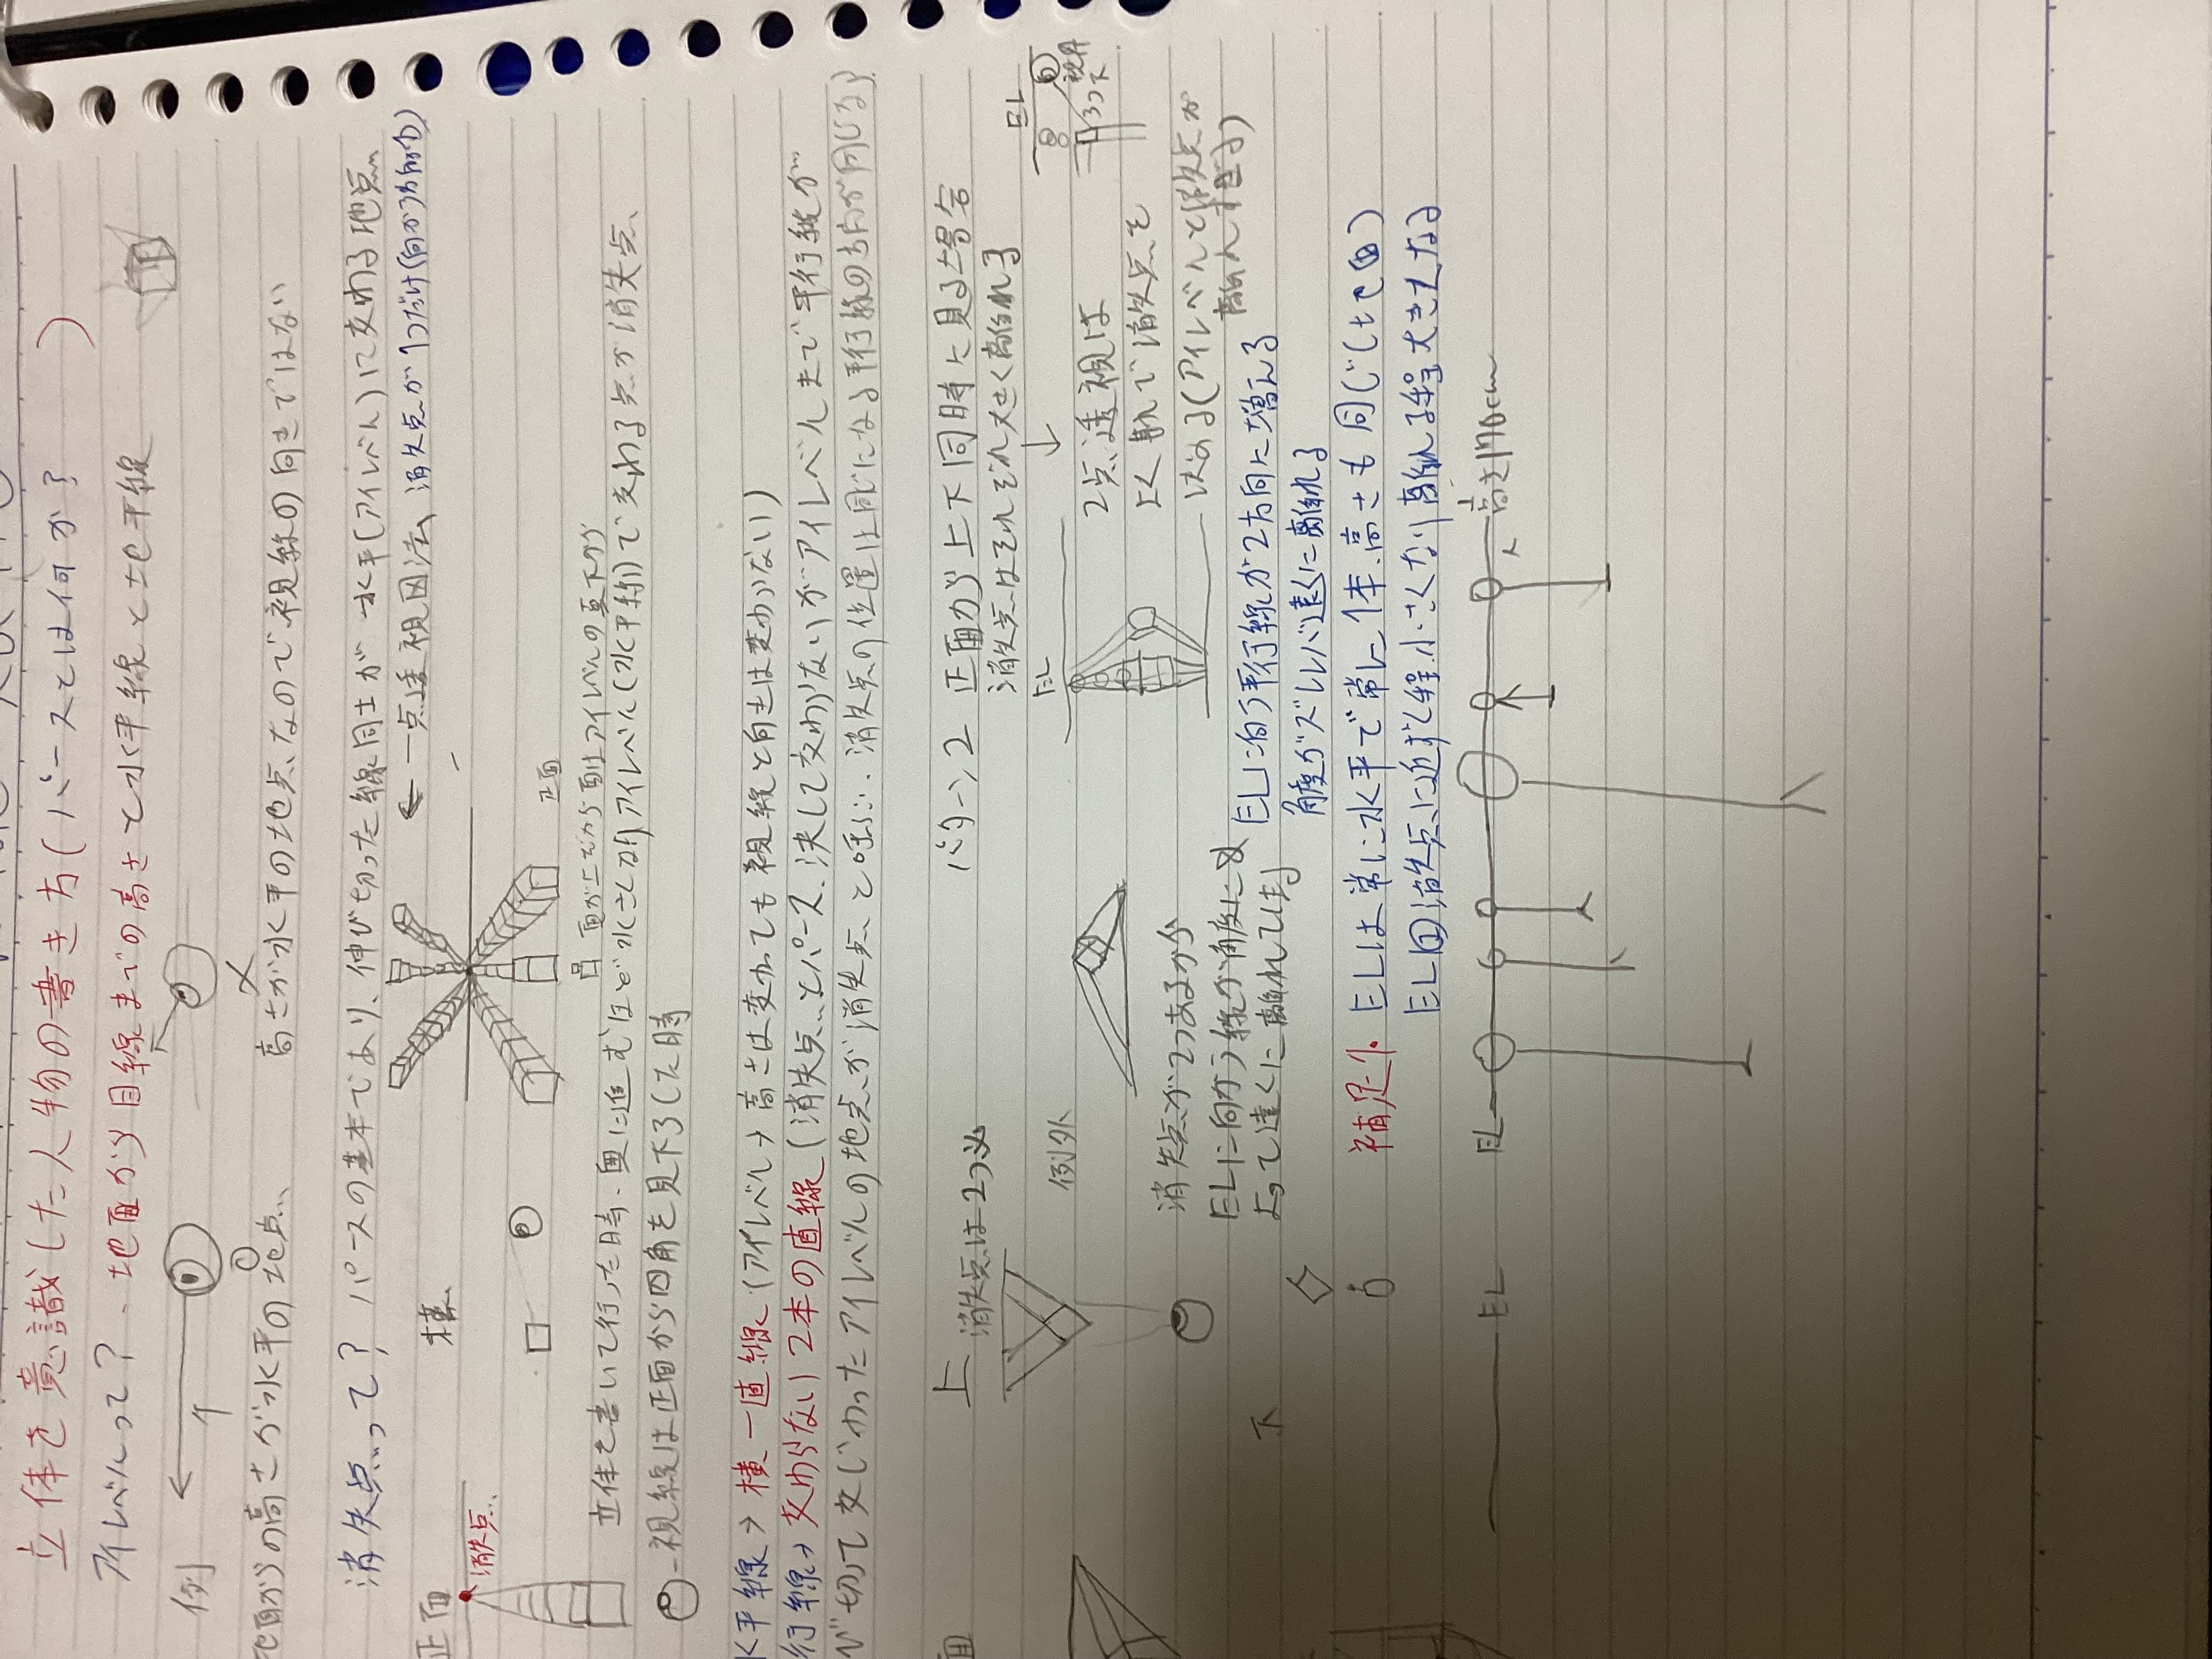 立体を意識した人物の書き方(パースとは何か?)
アイレベルって?、地面から目線までの高さと水平線と地平線
例
地面からの高さが水平の地点、
高さが水平の地点、なので視線の向きではない
消失点って? パースの基本であり、伸び切った線同士が水平(アイレベル)に交わる地点
正面
消失点、
横
←一点透視図法、消失点が1つだけ
正面
面が上だから
立体を書いて行った時、奥に進むほど小さくなりアイレベル(水平線)で交わる点が消失点、
視線は正面から四角を見下ろした時
水平線→横一直線(アイレベル→高さは変わっても視線と向きは変わらない)
行線→交わらない2本の直線(消失点とパース、決して交わらないがアイレベルまで平行線が
び切って交じわったアイレベルの地点が消失点と呼ぶ、消失点の位置は同じになる平行線の方向が同じなら)
面
上 消失点は2つ
パターン2 正面から上下同時に見る場合
消失点はそれぞれ大きく離れる
EL
EL
例外
2点透視は
よく
で消失点を
はめる(アイレベルと消失点が
離れすぎる)
消失点が2つあるから
ELに向かう線が角度に
よって遠くに離れてしまう
ELに向う平行線が2方向に増える
角度がズレれば遠くに離れる
下
補足1.
ELは常に水平で常に1本、高さも同じ
EL
消失点に近づく程小さくなり離れる程大きくなる
EL
高さ170cm
EL